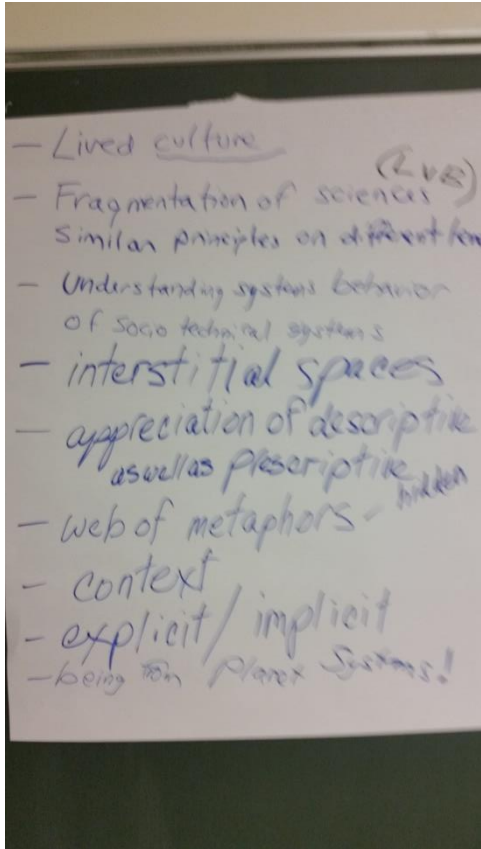 - Lived culture
(LvB)
- Fragmentation of sciences
Similar principles on different
- Understanding systems behavior
of socio technical systems
- interstitial spaces
- appreciation of descriptive
as well as prescriptive
- web of metaphors - hidden
- context
- explicit / implicit
- being from Planet Systems!